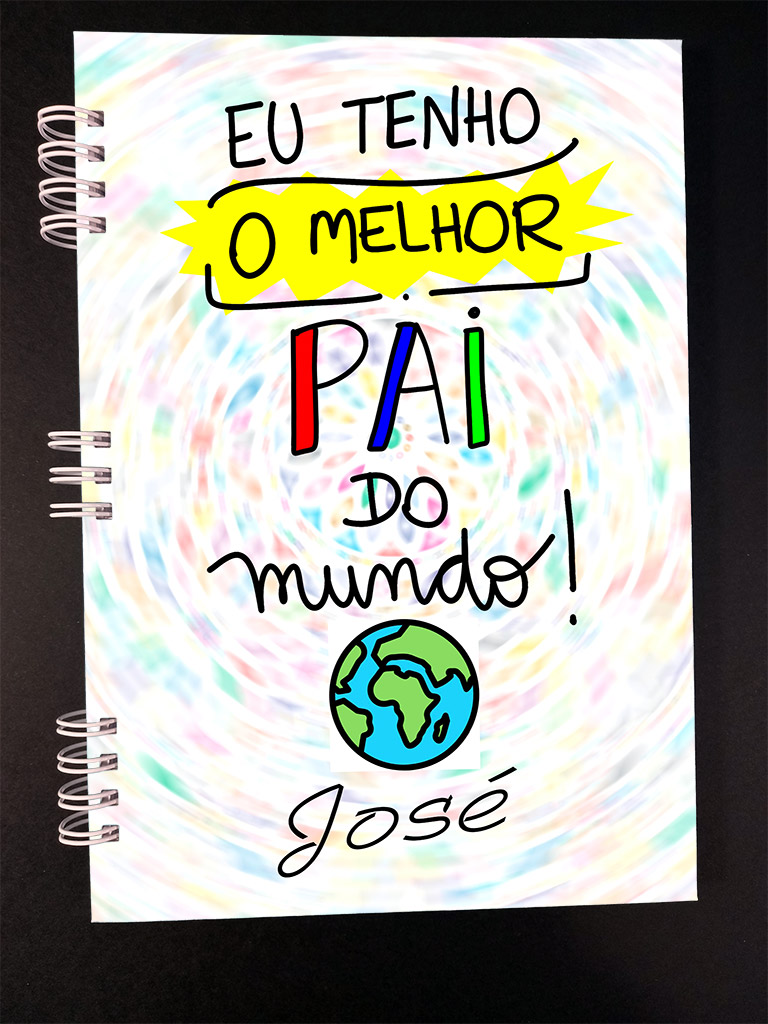 EU TENHO
O MELHOR
PAi
DO
mundo!
José